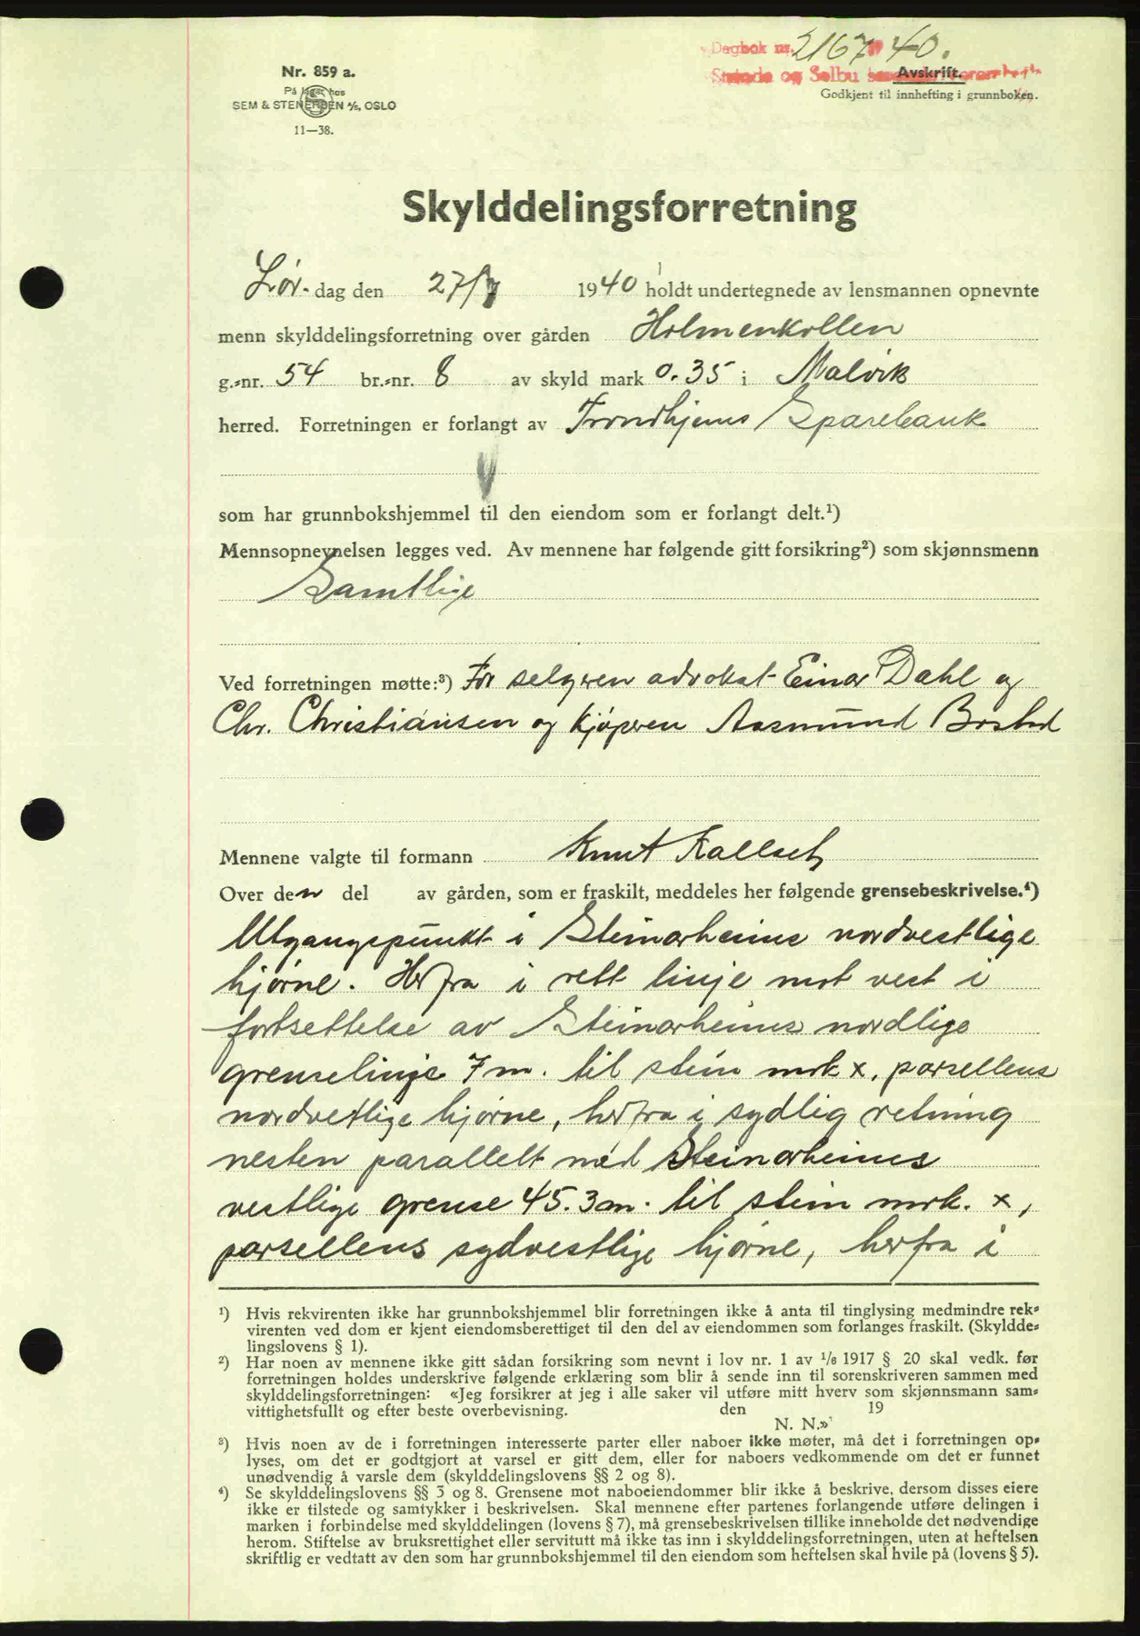 Dagbok nr. 2167 40.
Strinda og Selbu
Avskrift.
Godkjent til innhefting i grunnboken.
Nr. 859 a.
På lager hos
SEM & STENERSEN A/S, OSLO
11—38.
Skylddelingsforretning
Lør. dag den 27/7 1940 holdt undertegnede av lensmannen opnevnte
menn skylddelingsforretning over gården Holmenkollen
g.-nr. 54 br.-nr. 8 av skyld mark 0.35 i Malvik
herred. Forretningen er forlangt av Trondhjems Sparebank
som har grunnbokshjemmel til den eiendom som er forlangt delt.¹)
Mennsopnevnelsen legges ved. Av mennene har følgende gitt forsikring²) som skjønnsmenn
Samtlige
Ved forretningen møtte:³) For selgeren advokat Einar Dahl og
Chr. Christiansen og kjøperen Aasmund
Mennene valgte til formann Knut
Over den del av gården, som er fraskilt, meddeles her følgende grensebeskrivelse.⁴)
Utgangspunkt i Steinarheims nordvestlige
hjørne. Herfra i rett linje mot vest i
fortsettelse av Steinarheims nordlige
grenselinje 7 m. til stein mrk x, parsellens
nordvetlige hjørne, herfra i sydlig retning
nesten parallelt med Steinarheims
vestlige grense 45.3 m. til stein mrk. x,
parsellens sydvestlige hjørne, herfra i
¹) Hvis rekvirenten ikke har grunnbokshjemmel blir forretningen ikke å anta til tinglysing medmindre rek-
virenten ved dom er kjent eiendomsberettiget til den del av eiendommen som forlanges fraskilt. (Skyldde-
lingslovens § 1).
²) Har noen av mennene ikke gitt sådan forsikring som nevnt i lov nr. 1 av 1/6 1917 § 20 skal vedk. før
forretningen holdes underskrive følgende erklæring som blir å sende inn til sorenskriveren sammen med
skylddelingsforretningen: «Jeg forsikrer at jeg i alle saker vil utføre mitt hverv som skjønnsmann sam-
vittighetsfullt og efter beste overbevisning. den 19
N. N.»
³) Hvis noen av de i forretningen interesserte parter eller naboer ikke møter, må det i forretningen op-
lyses, om det er godtgjort at varsel er gitt dem, eller for naboers vedkommende om det er funnet
unødvendig å varsle dem (skylddelingslovens §§ 2 og 8).
⁴) Se skylddelingslovens §§ 3 og 8. Grensene mot naboeiendommer blir ikke å beskrive, dersom disses eiere
ikke er tilstede og samtykker i beskrivelsen. Skal mennene efter partenes forlangende utføre delingen i
marken i forbindelse med skylddelingen (lovens § 7), må grensebeskrivelsen tillike inneholde det nødvendige
herom. Stiftelse av bruksrettighet eller servitutt må ikke tas inn i skylddelingsforretningen, uten at heftelsen
skriftlig er vedtatt av den som har grunnbokshjemmel til den eiendom som heftelsen skal hvile på (lovens § 5).